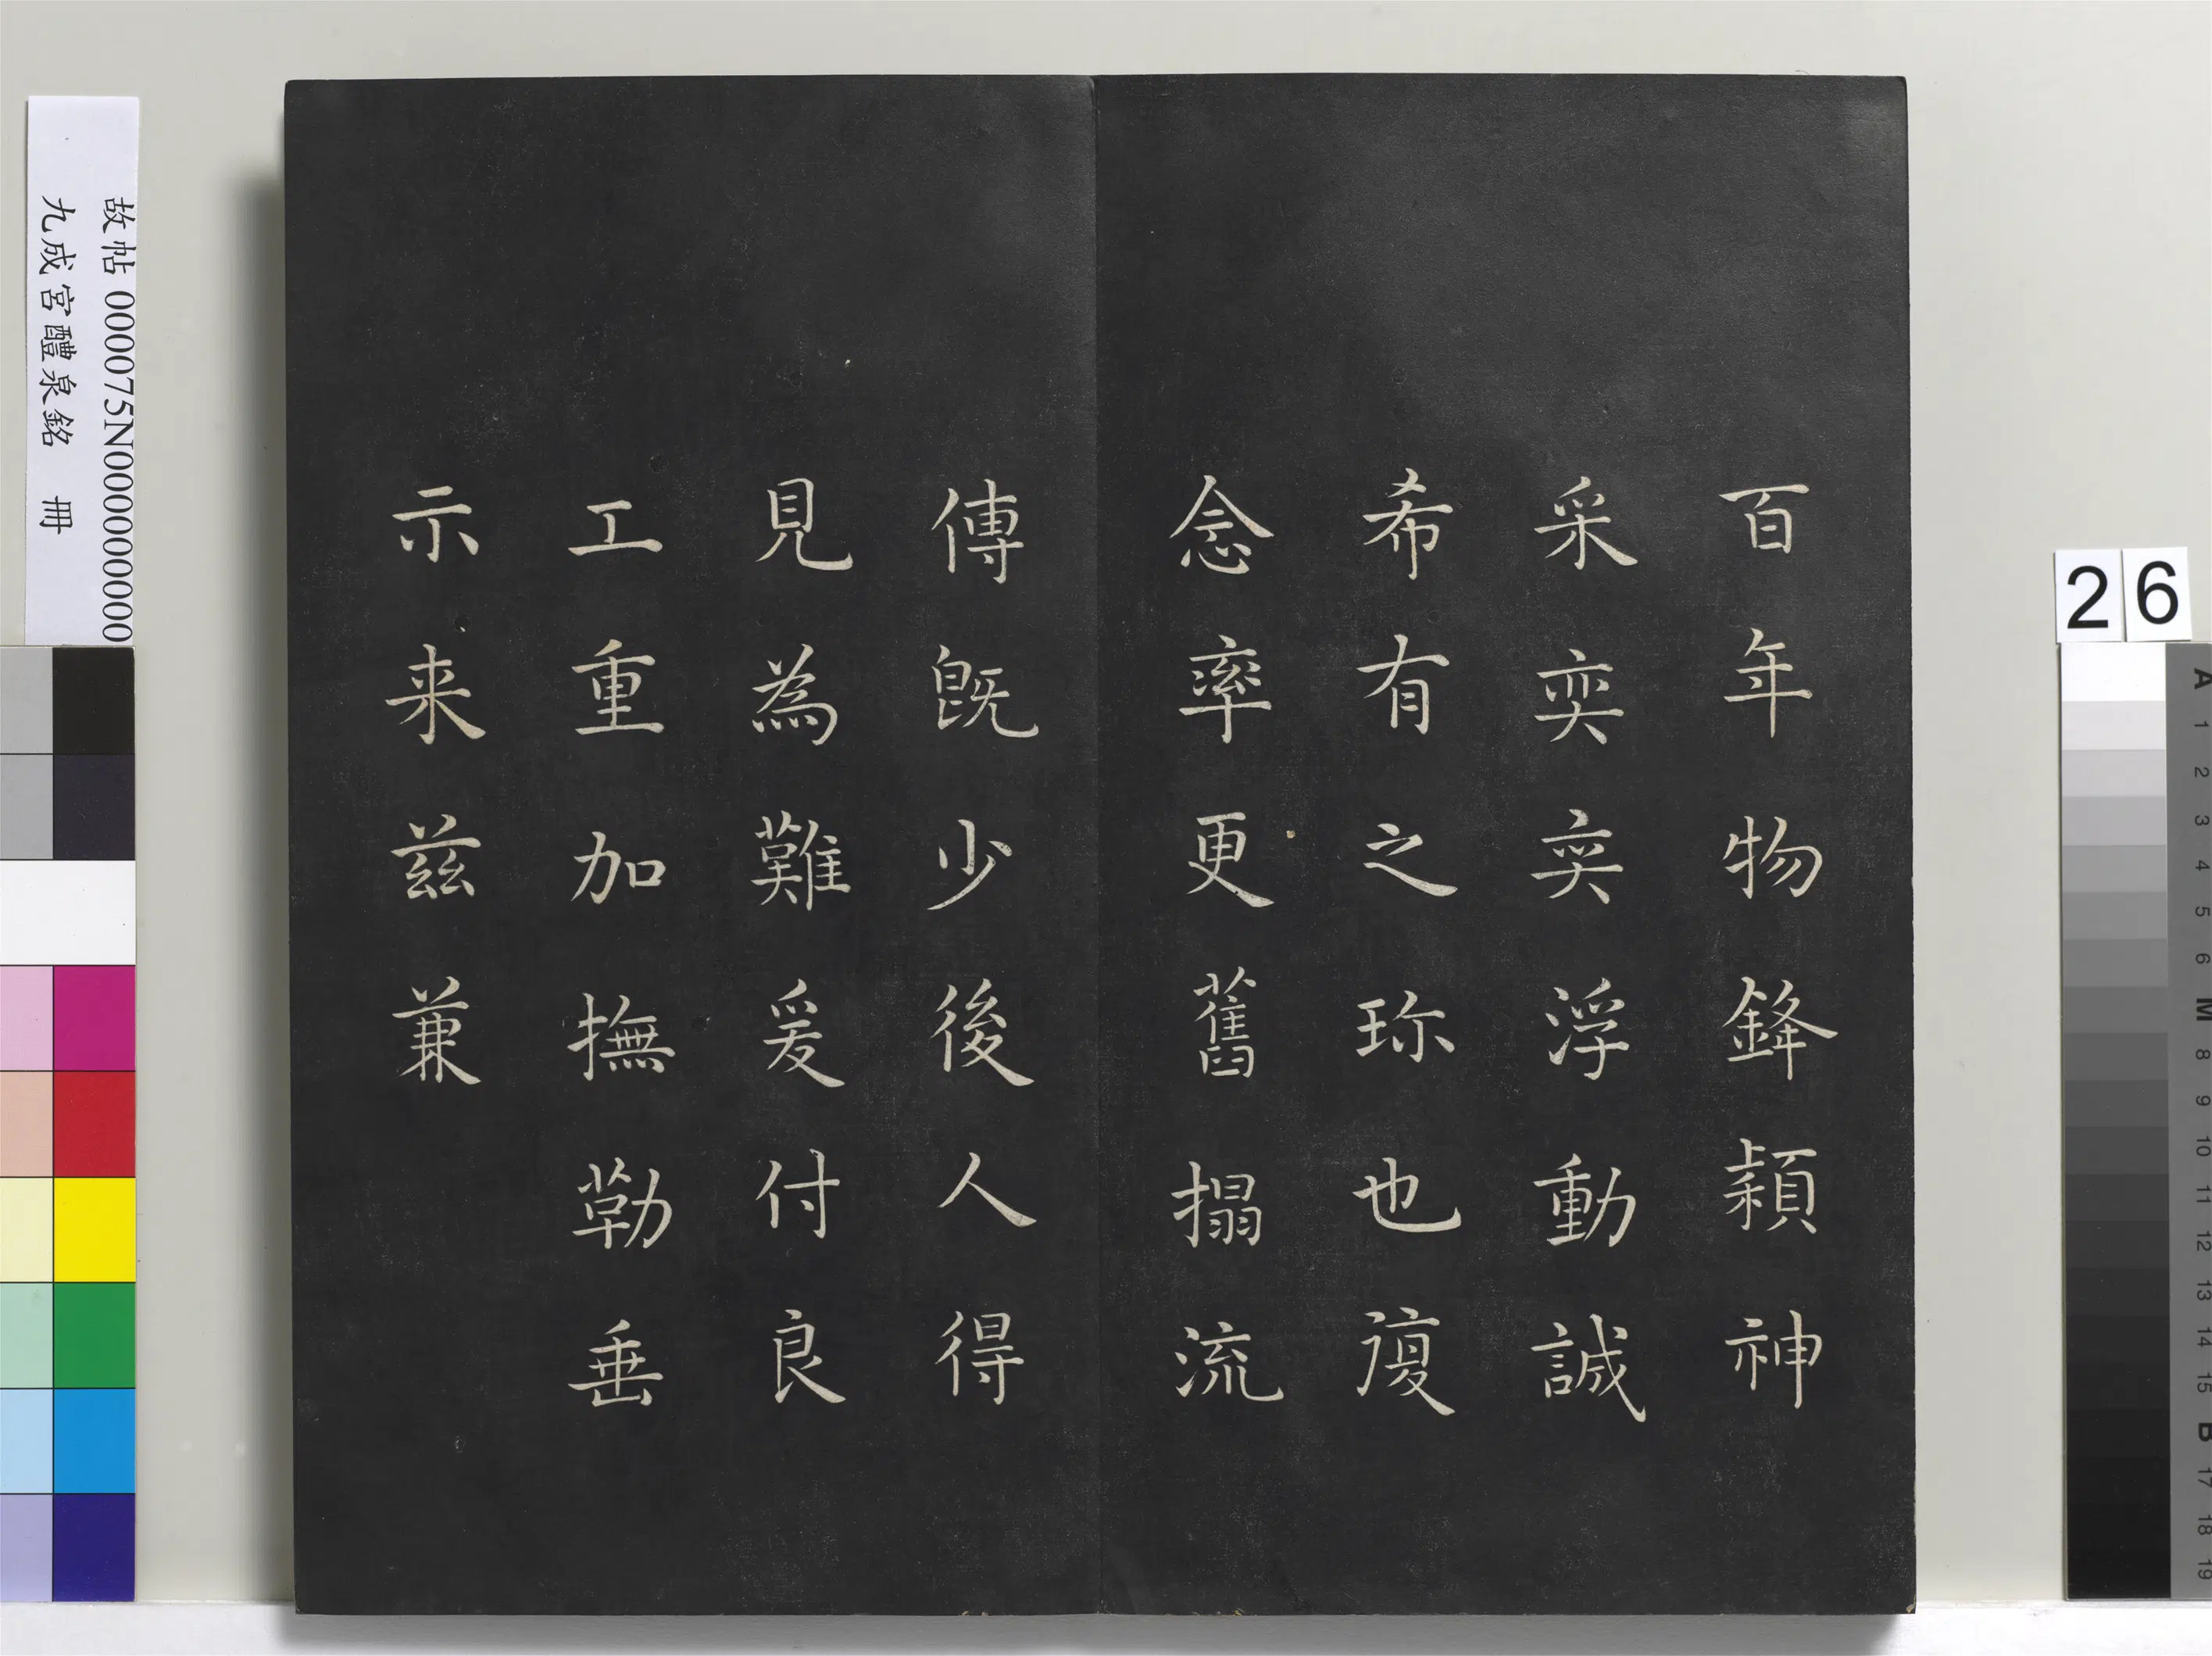 百年物鋒潁神
采奕奕浮動誠
希有之珎也復
念率更舊搨流
傳既少後人得
見為難爰付良
工重加撫勒垂
示来兹兼
故帖 000075N000000000
九成宮醴泉銘 冊
26
A 1 2 3 4 5 6 M 8 9 10 11 12 13 14 15 B 17 18 19